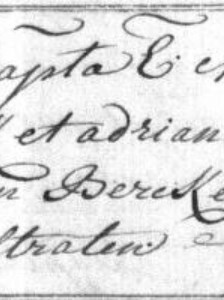 apta E
et adrian
n BercKe
straten.